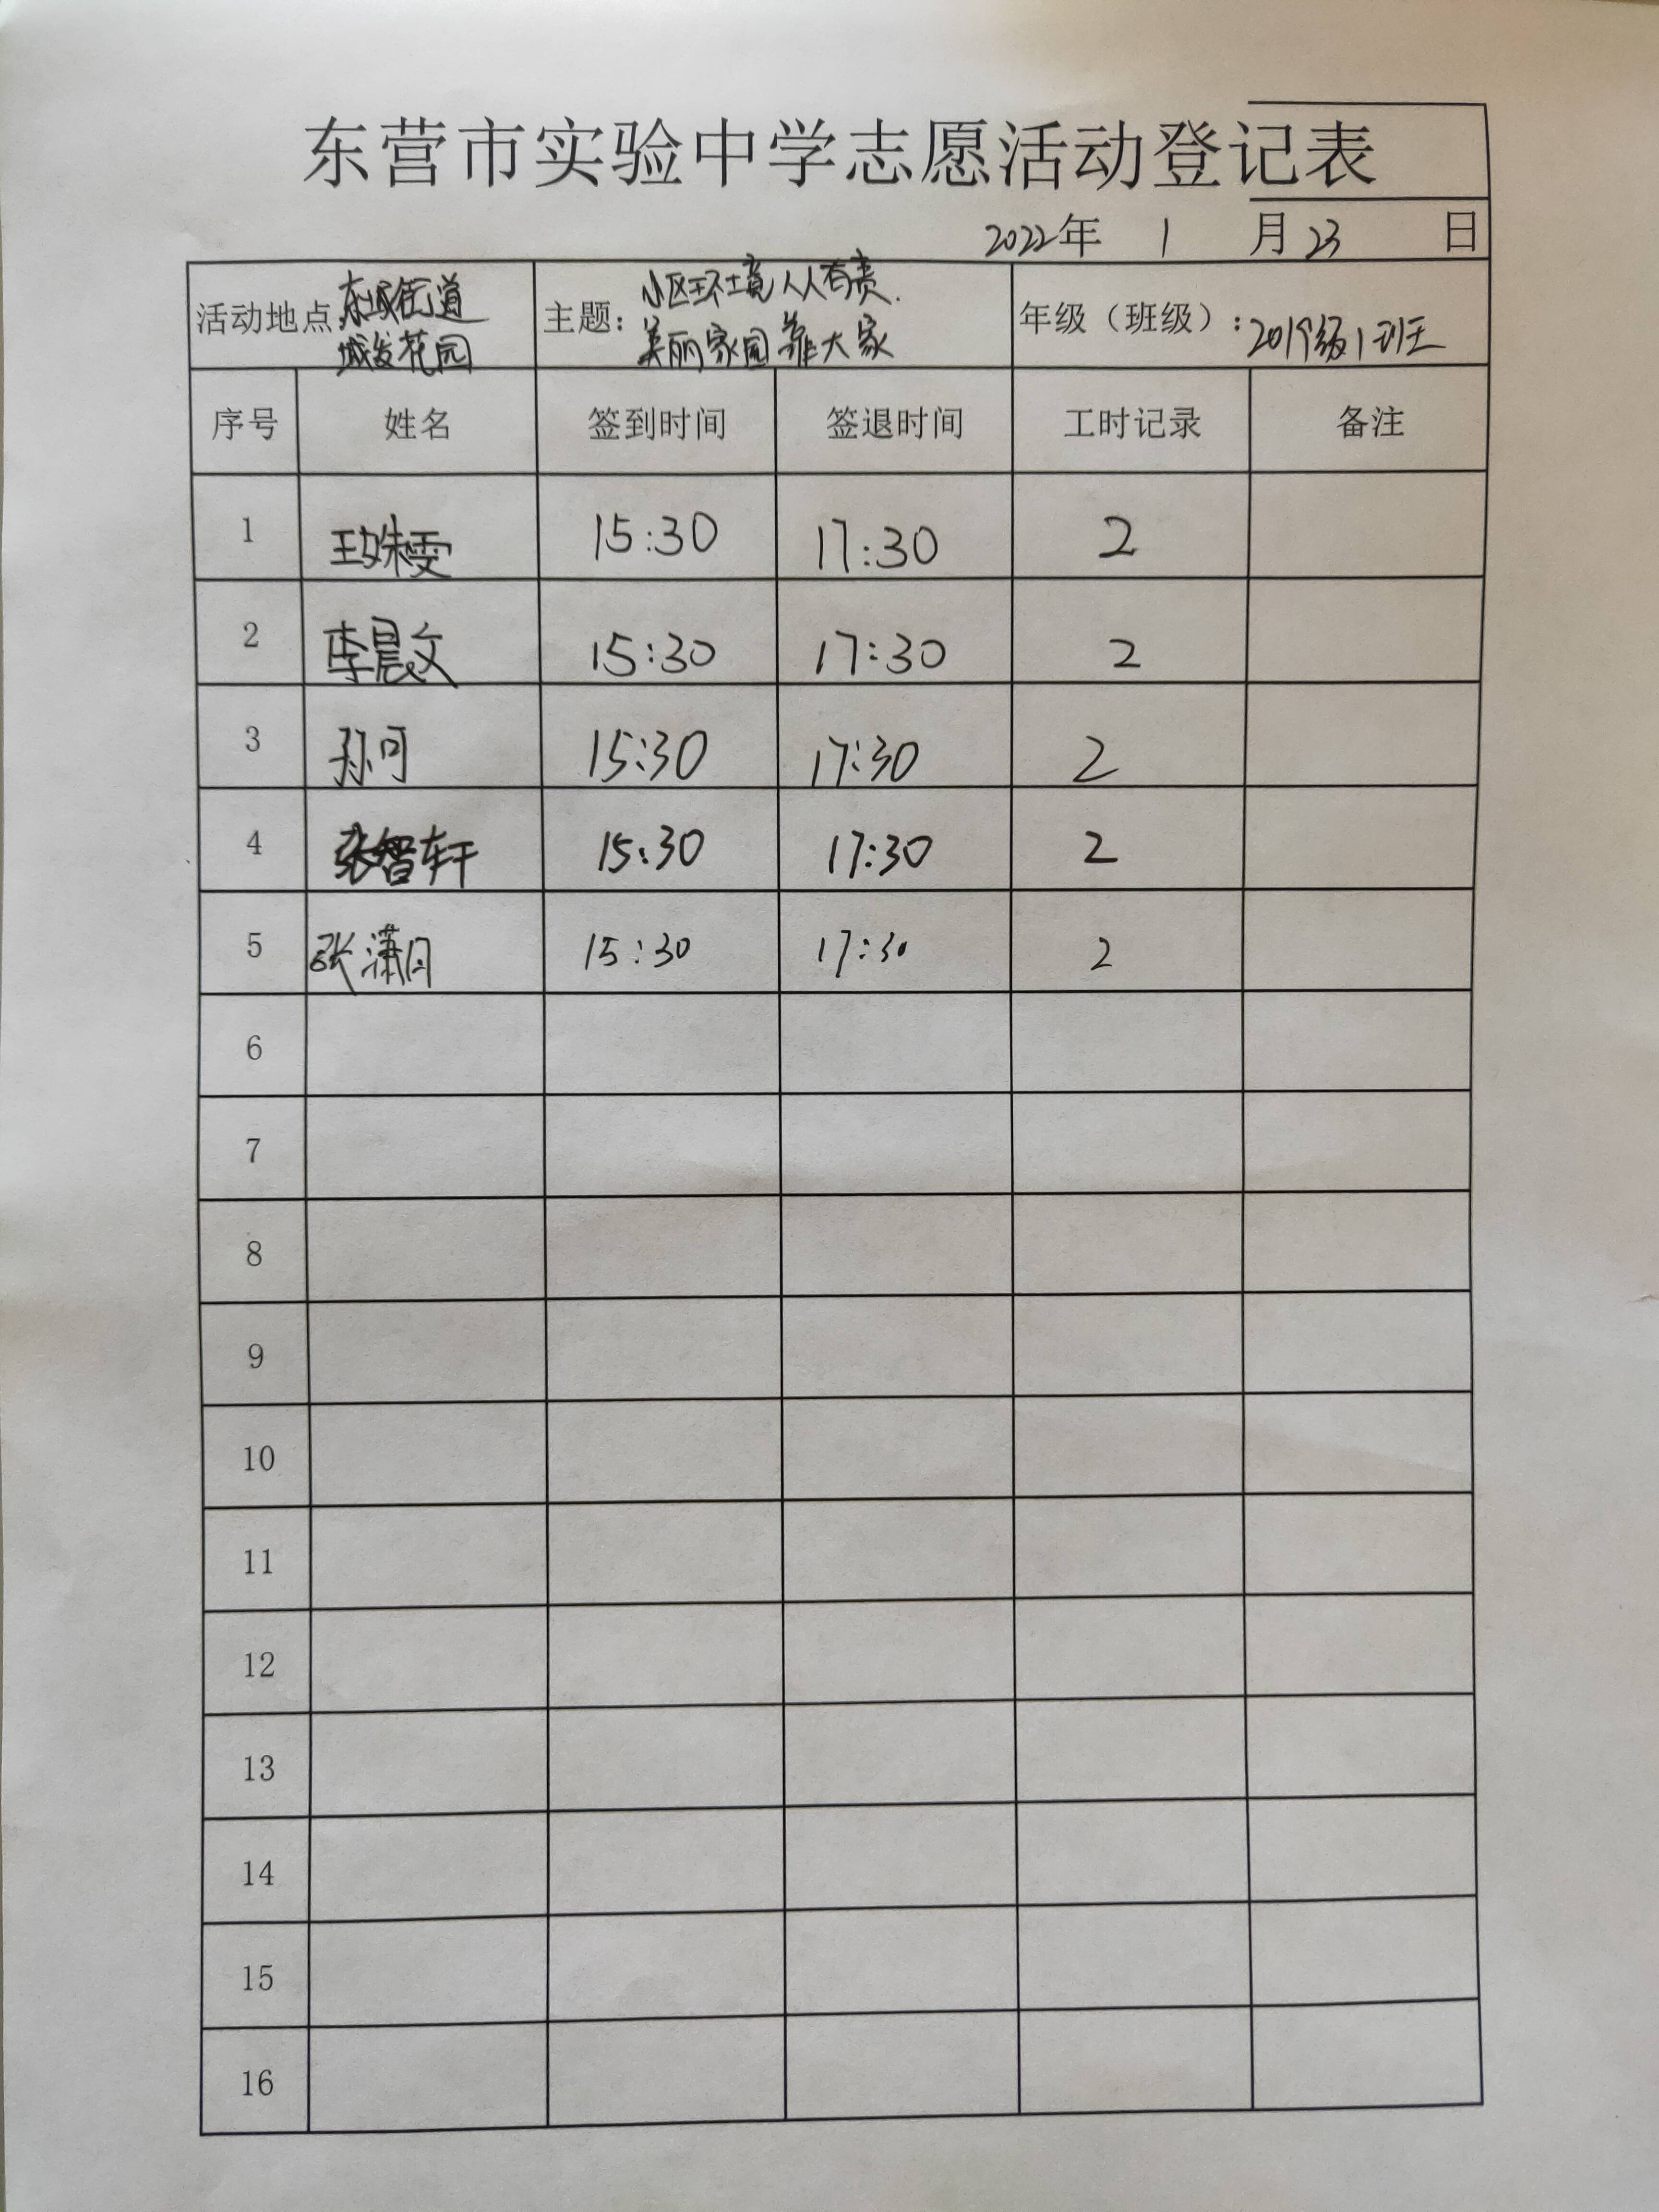 东营市实验中学志愿活动登记表
2022年 1 月 23 日
活动地点:东城街道 城发花园 主题:小区环境人人有责. 美丽家园靠大家 年级(班级):2019级1班
序号 姓名 签到时间 签退时间 工时记录 备注
1 王姝雯 15:30 17:30 2
2 李晨文 15:30 17:30 2
3 孙可 15:30 17:30 2
4 张智轩 15:30 17:30 2
5 张潇月 15:30 17:30 2
6
7
8
9
10
11
12
13
14
15
16